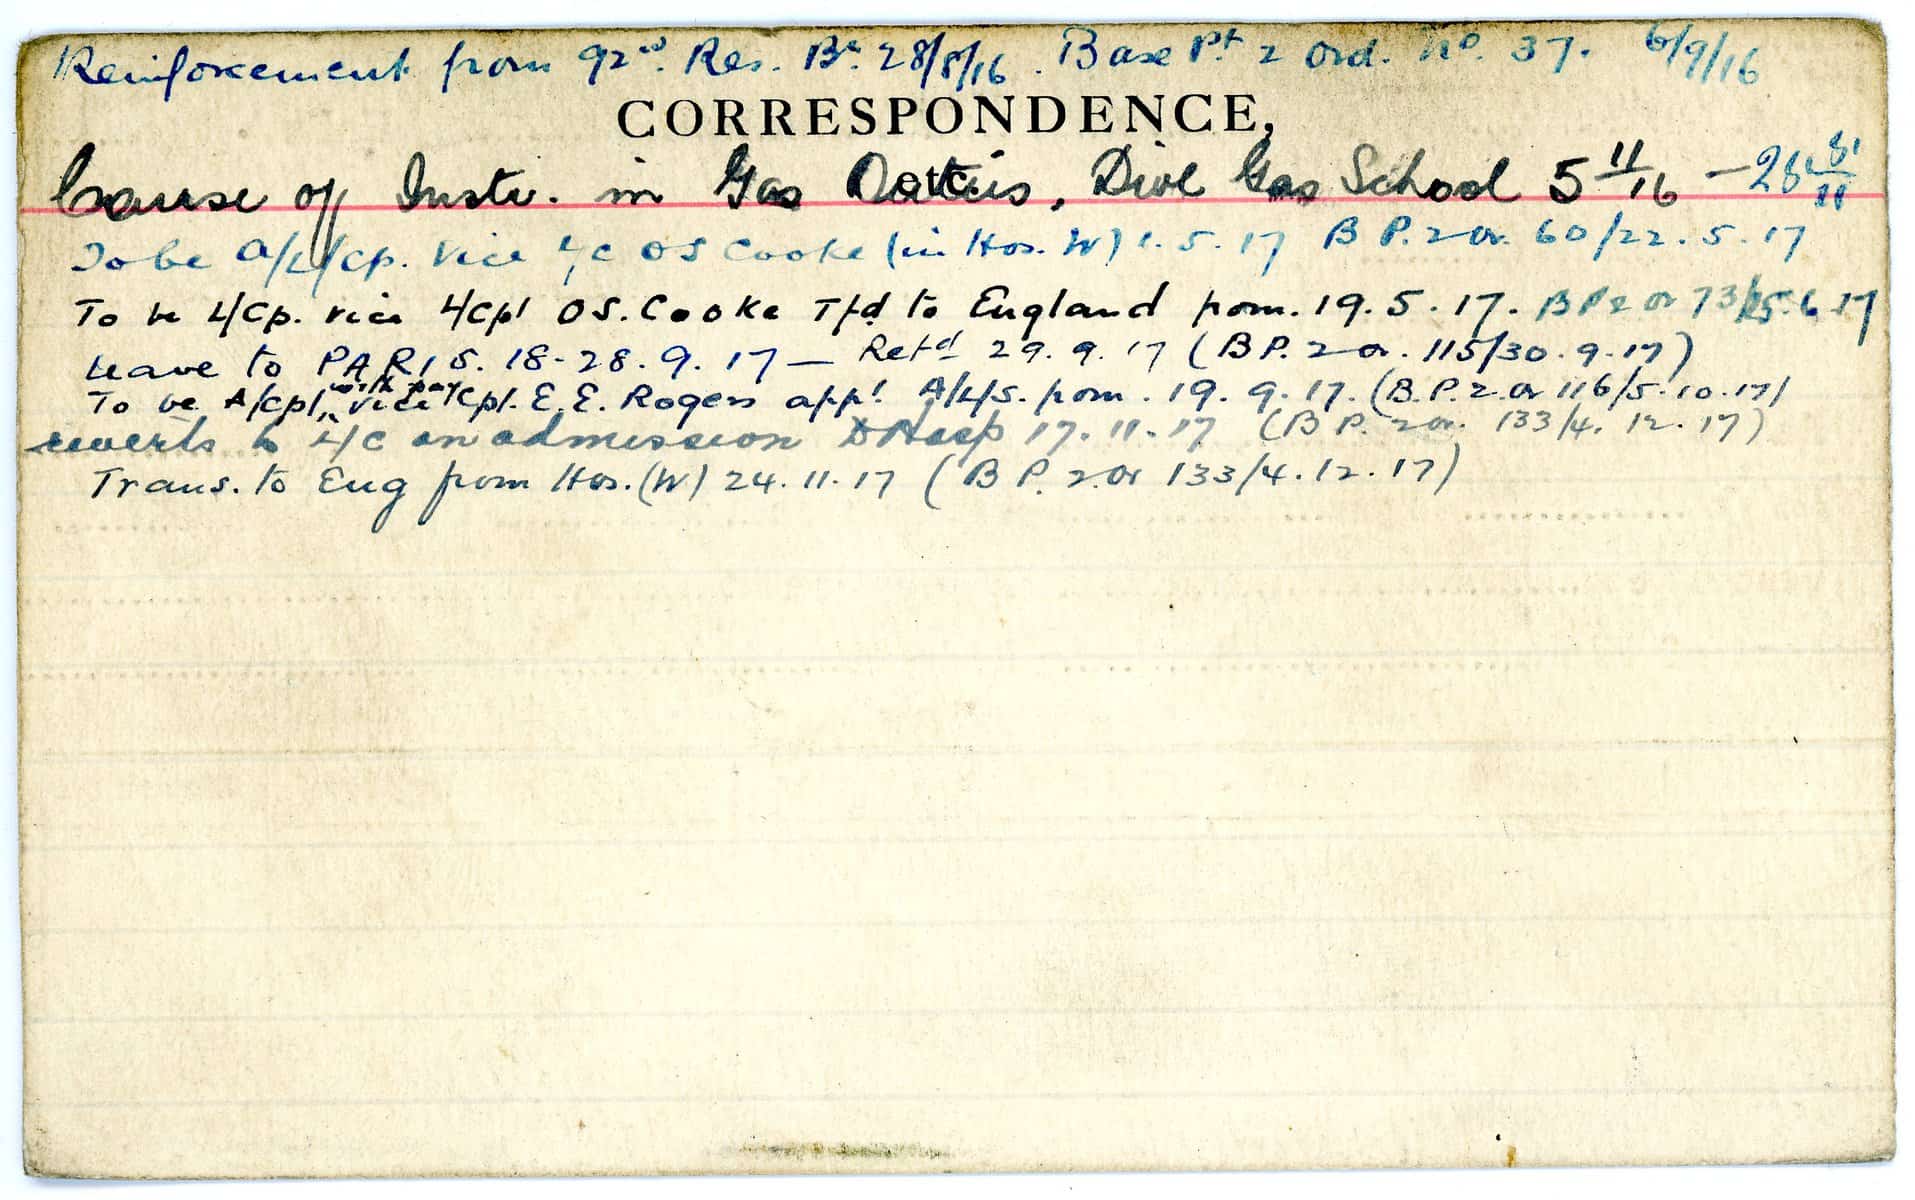 Reinforcement from 92nd. Res. Bn. 28/8/16. Base Pt 2 Ord. No. 37. 6/9/16
CORRESPONDENCE,
Course of Instr. in Gas Duties, Divl Gas School 5 11/16 - 28
To be A/L/Cp. vice L/C OS Cooke (in Hos. W) 1.5.17 B P. 2 Or. 60/22.5.17
To be L/Cp. vice L/Cpl OS. Cooke Tfd to England prom. 19.5.17. B P 2 Or 73/25.6.17
Leave to PARIS. 18-28.9.17 — Retd 29.9.17 (B P. 2 Or. 115/30.9.17)
To be A/Cpl, with pay vice Cpl. E. E. Rogers app! A/L/S. prom. 19.9.17. (B.P. 2. Or 116/5.10.17)
reverts to L/C on admission to Hosp 17.11.17 (B P. 2 Or. 133/4.12.17)
Trans. to Eng from Hos. (W) 24.11.17 (B P. 2 Or 133/4.12.17)